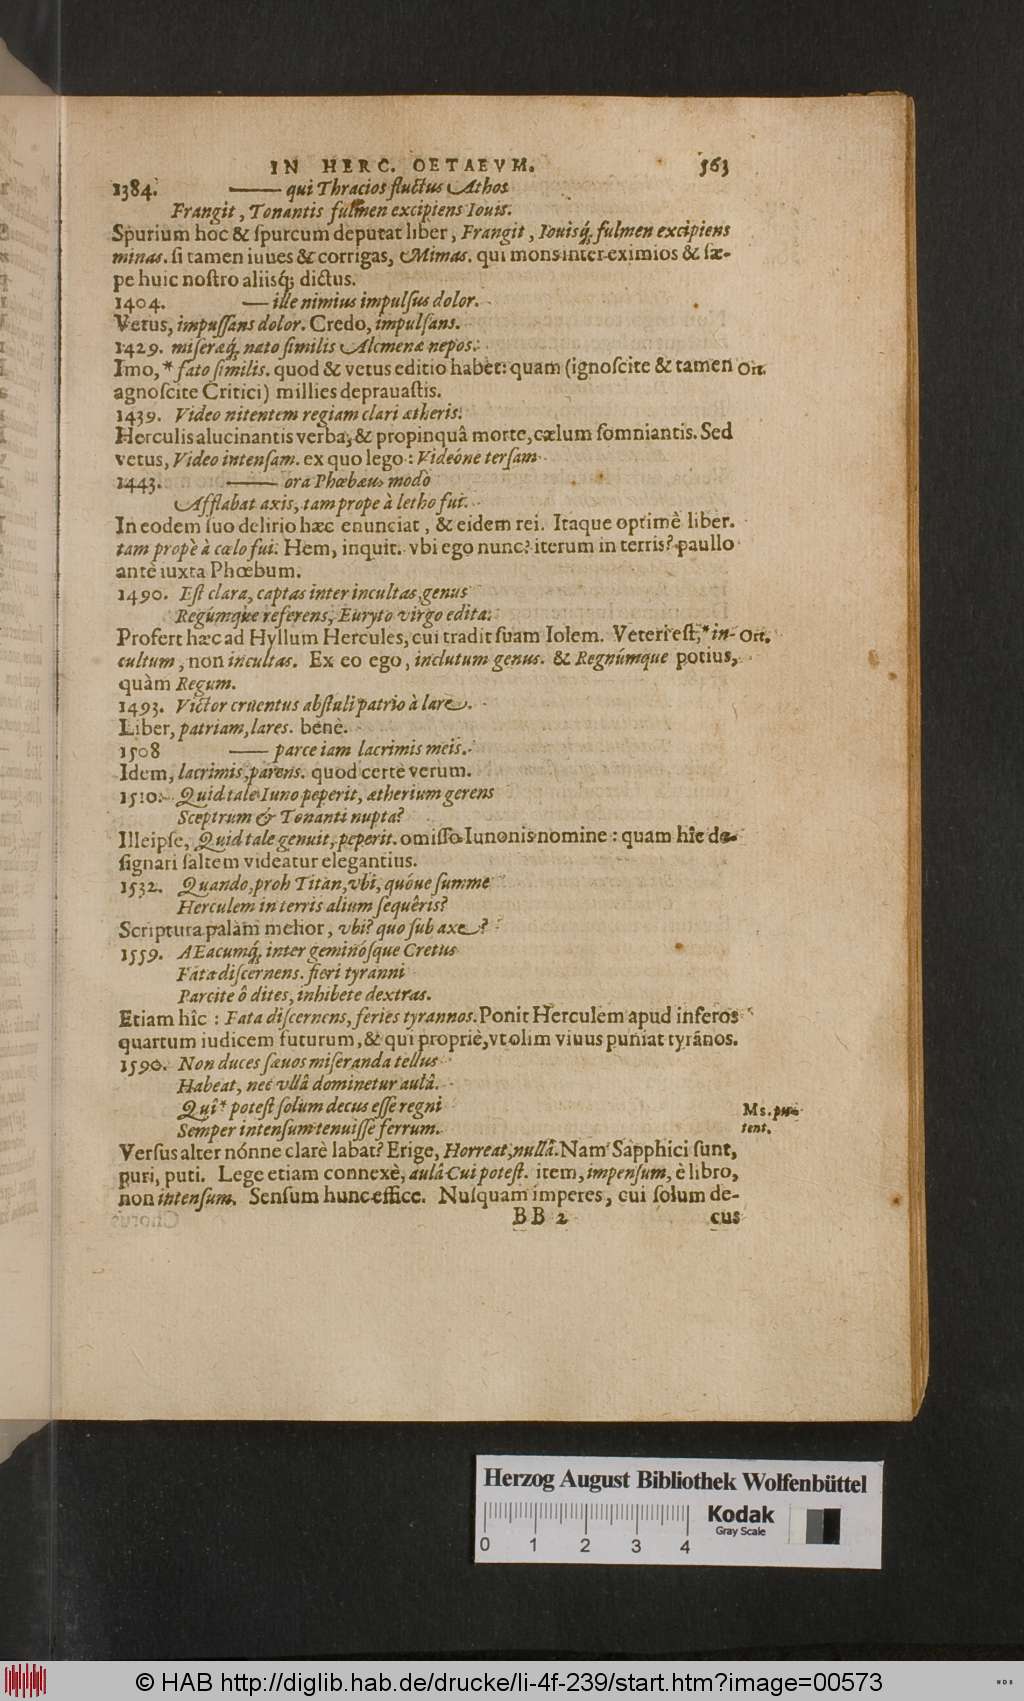 IN HERC. OETAEVM. 563
1384. —— qui Thracios fluctus Athos
Frangit, Tonantis fulmen excipiens Iouis.
Spurium hoc & ſpurcum deputat liber, Frangit, Iouisq́; fulmen excipiens
minas. ſi tamen iuues & corrigas, Mimas. qui mons inter eximios & ſæ-
pe huic noſtro aliisq́; dictus.
1404. — ille nimius impulſus dolor.
Vetus, impuſſans dolor. Credo, impulſans.
1429. miſeræq́; nato ſimilis Alcmenæ nepos.
Imo, * fato ſimilis. quod & vetus editio habet: quam (ignoſcite & tamen Ort.
agnoſcite Critici) millies deprauaſtis.
1439. Video nitentem regiam clari ætheris.
Herculis alucinantis verba, & propinquâ morte, cælum ſomniantis. Sed
vetus, Video intenſam. ex quo lego: Videóne terſam
1443. —— ora Phœbæus modo
Afflabat axis, tam prope à letho fui.
In eodem ſuo delirio hæc enunciat, & eidem rei. Itaque optimè liber.
tam propè à cælo fui. Hem, inquit. vbi ego nunc? iterum in terris? paullo
antè iuxta Phœbum.
1490. Eſt clara, captas inter incultas, genus
Regúmque referens, Euryto virgo edita.
Profert hæc ad Hyllum Hercules, cui tradit ſuam Iolem. Veteri eſt, * in- Ort.
cultum, non incultas. Ex eo ego, inclutum genus. & Regnúmque potius,
quàm Regum.
1493. Victor cruentus abſtuli patrio à lare.
Liber, patriam, lares. benè.
1508 —— parce iam lacrimis meis.
Idem, lacrimis, parens. quod certè verum.
1510. Quid tale Iuno peperit, ætherium gerens
Sceptrum & Tonanti nupta?
Ille ipſe, Quid tale genuit, peperit. omiſſo Iunonis nomine: quam hîc de-
ſignari ſaltem videatur elegantius.
1532. Quando, proh Titan, vbi, quóue ſumme
Herculem in terris alium ſequêris?
Scriptura palàm melior, vbi? quo ſub axe?
1559. AEacumq́; inter geminóſque Cretus
Fata diſcernens. fieri tyranni
Parcite ô dites, inhibete dextras.
Etiam hîc: Fata diſcernens, feries tyrannos. Ponit Herculem apud inferos
quartum iudicem futurum, & qui propriè, vt olim viuus puniat tyrános.
1590. Non duces ſæuos miſeranda tellus
Habeat, nec vllâ dominetur aulâ.
Quî * poteſt ſolum decus eſſe regni Ms. pu-
Semper intenſum tenuiſſe ferrum. tent.
Verſus alter nónne clarè labat? Erige, Horreat, nullâ. Nam Sapphici ſunt,
puri, puti. Lege etiam connexè, aulâ Cui poteſt. item, impenſum, è libro,
non intenſum. Senſum hunc effice. Nuſquam imperes, cui ſolum de-
BB 2 cus
Herzog August Bibliothek Wolfenbüttel
Kodak
Gray Scale
0 1 2 3 4
© HAB http://diglib.hab.de/drucke/li-4f-239/start.htm?image=00573